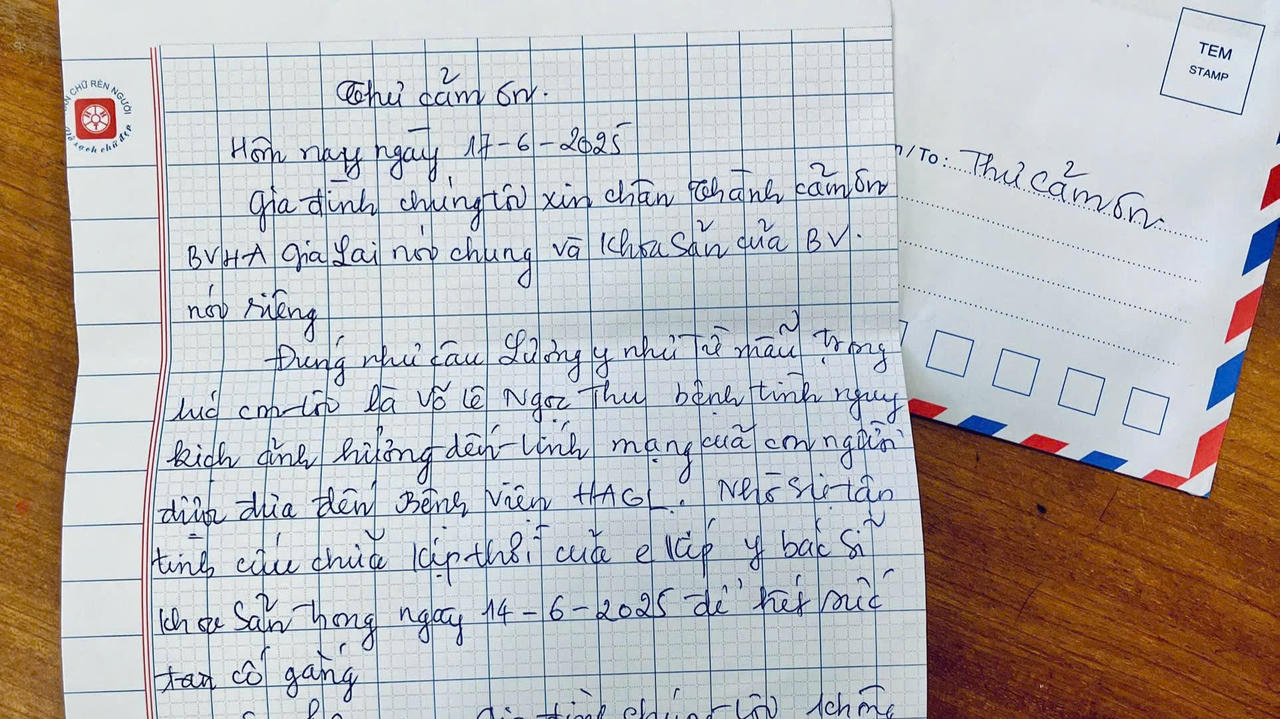 CHỮ RÈN NGƯỜI
sạch chữ đẹp
Thư cảm ơn.
Hôm nay ngày 17-6-2025
Gia đình chúng tôi xin chân thành cảm ơn
BVHA Gia Lai nói chung và Khoa Sản của BV.
nói riêng
Đúng như câu Lương y như Từ mẫu trong
lúc con tôi là Võ Lê Ngọc Thu bệnh tình nguy
kịch ảnh hưởng đến tính mạng của con người
được đưa đến Bệnh Viện HAGL. Nhờ sự tận
tình cứu chữa kịp thời của e kíp y bác sĩ
khoa Sản trong ngày 14-6-2025 để hết sức
cố gắng
gia đình chúng tôi không
TEM
STAMP
/ To: Thư cảm ơn